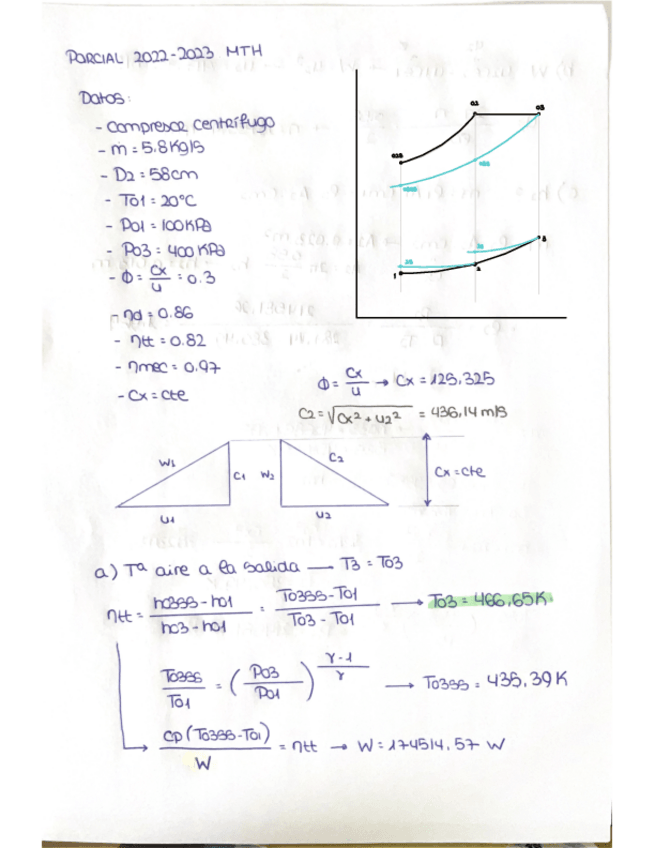 PARCIAL 2022-2023 MTH
Datos:
- Compresor centrífugo
- ṁ = 5.8 Kg/s
- D2 = 58cm
- T01 = 20°C
- P01 = 100KPa
- P03 = 400 KPa
- Φ = Cx/u = 0.3
- ηd = 0.86
- ηtt = 0.82
- ηmec = 0.97
- Cx = cte
02 03
1 2 3
Φ = Cx/u → Cx = 125,325
C2 = √(Cx² + u2²) = 436,14 m/s
W1 C1 W2 C2 Cx = cte
U1 U2
a) Tª aire a la salida — T3 = T03
ηtt = (h03ss - h01)/(h03 - h01) = (T03ss - T01)/(T03 - T01) → T03 = 466,65K
T03ss/T01 = (P03/P01)^((γ-1)/γ) → T03ss = 435,39K
Cp(T03ss - T01)/W = ηtt → W = 174514,57 W